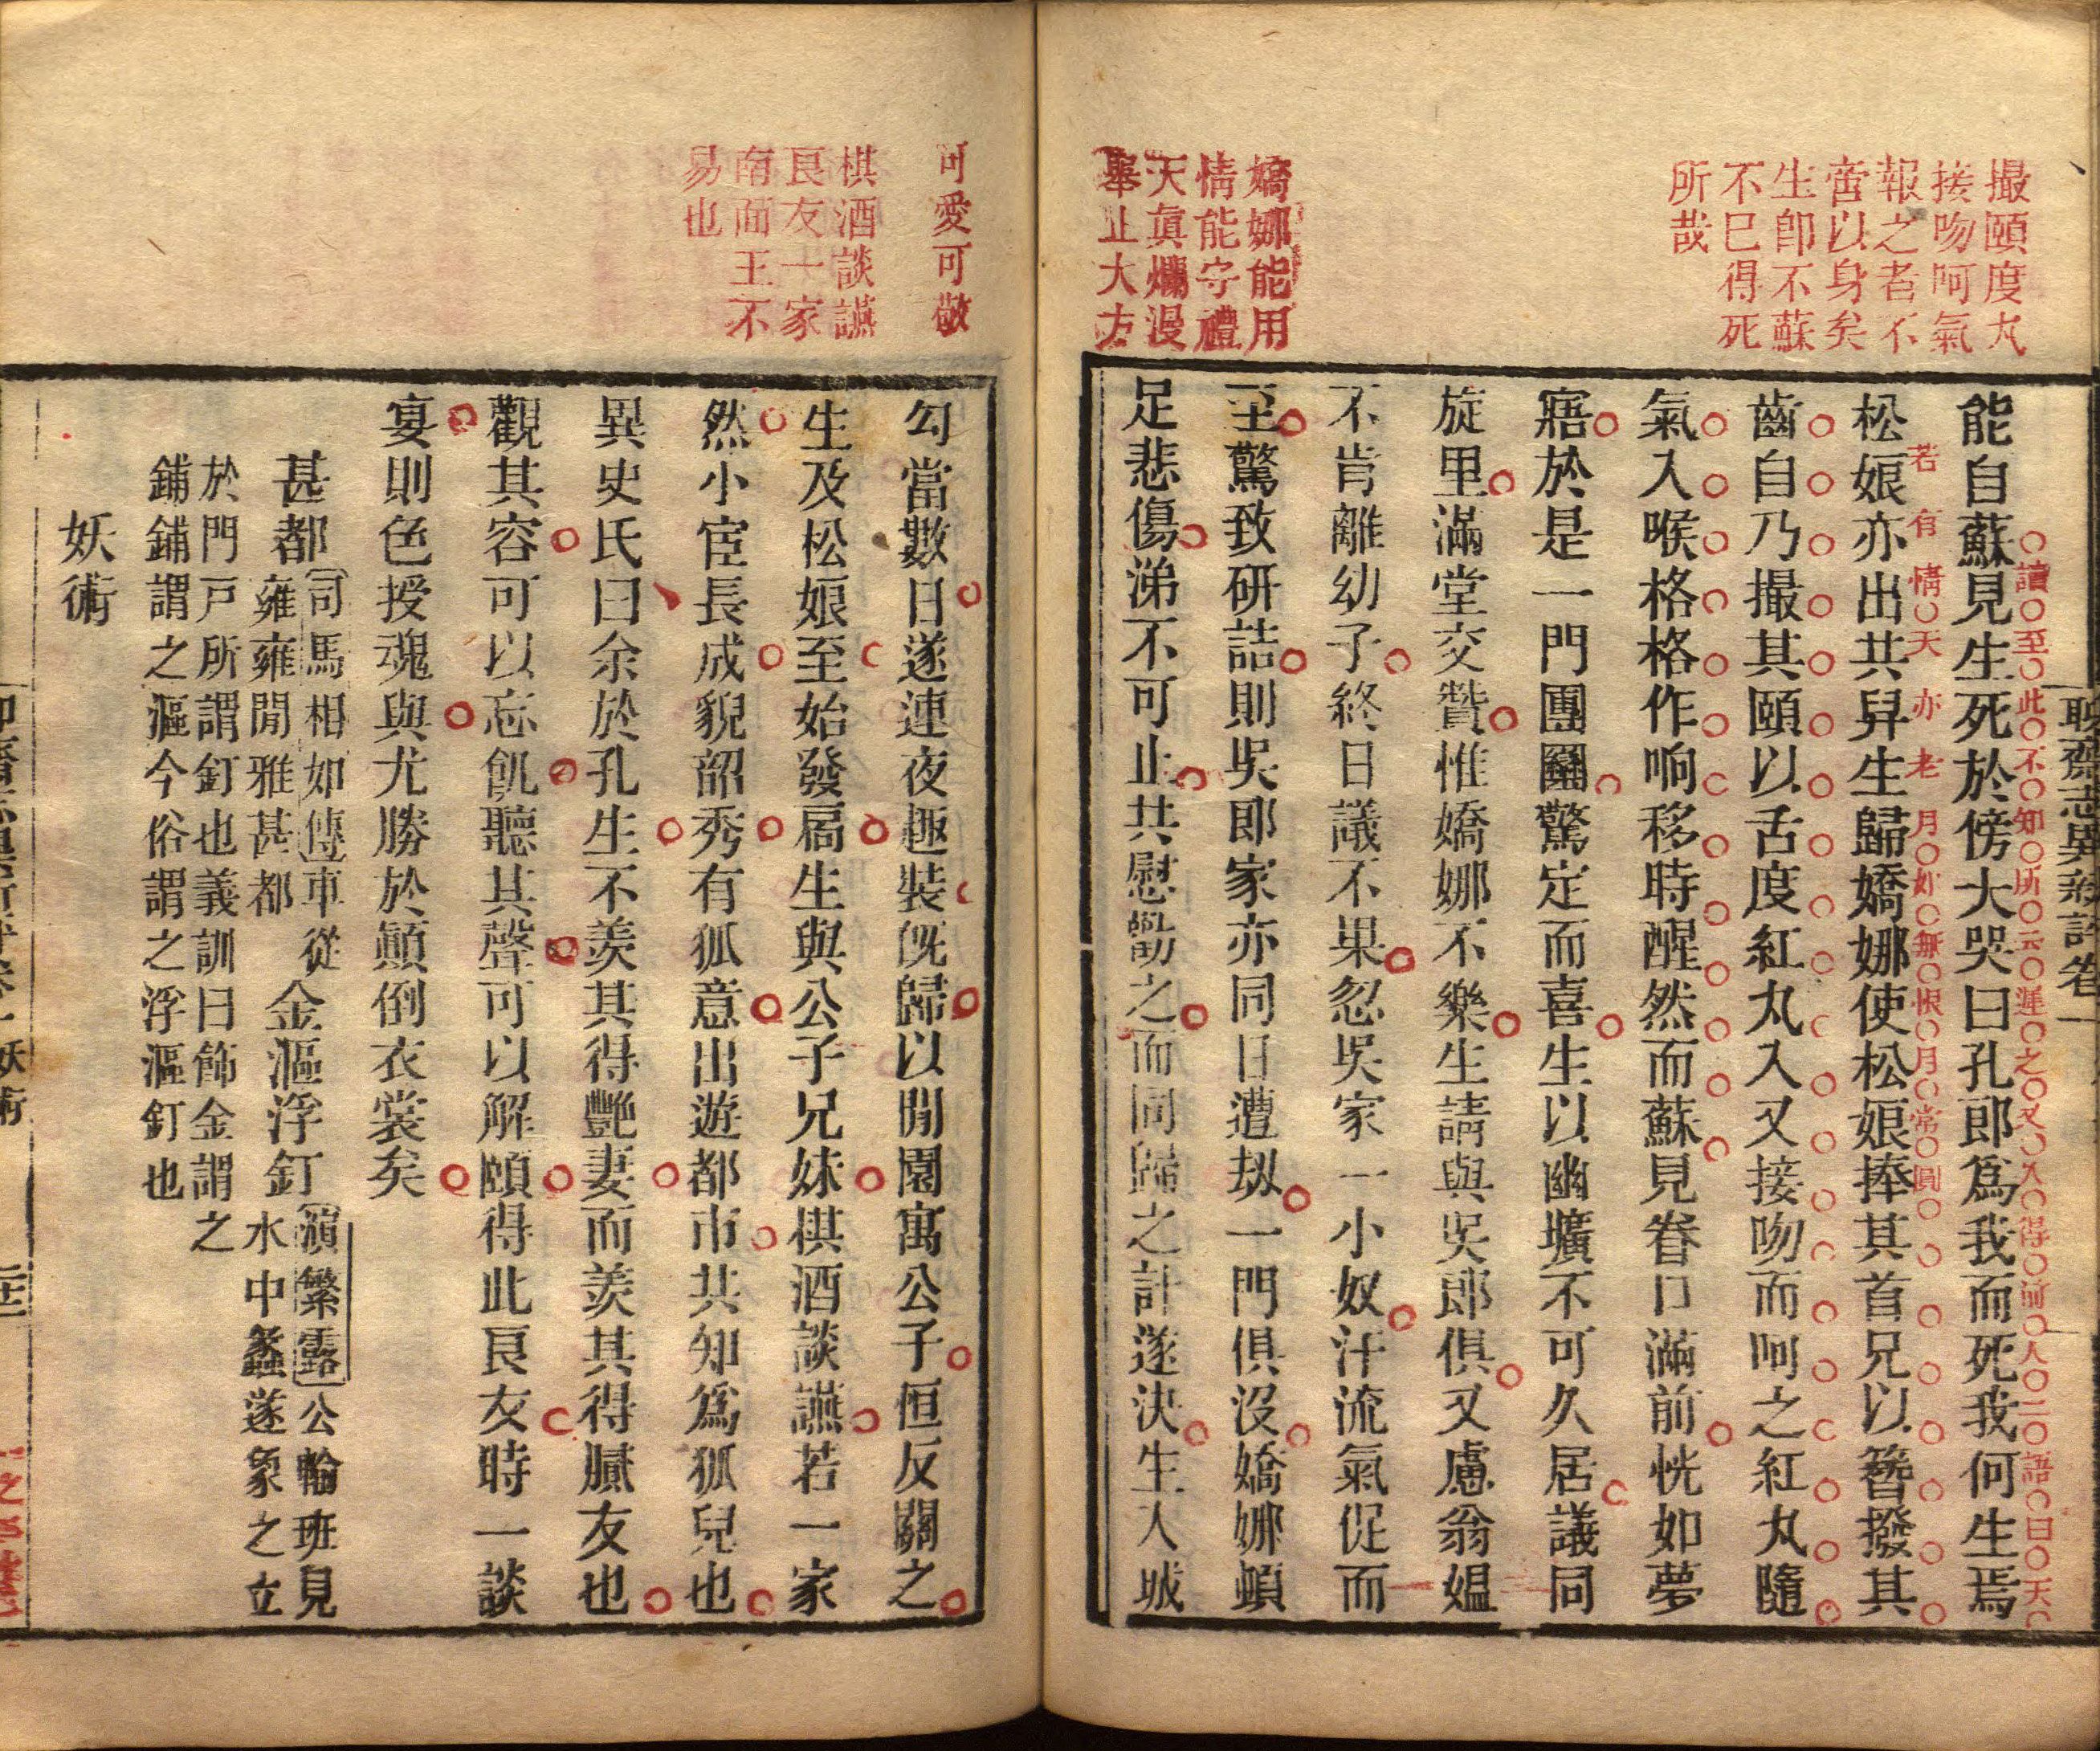 撮頤度丸
接吻呵氣
報之者不
啻以身矣
生卽不蘇
不已得死
所哉
嬌娜能用
情能守禮
天真爛漫
舉止大方
聊齋志異新評卷一
讀至此不知所云遲之又久得前人二語曰天
能自蘇見生死於傍大哭曰孔郎爲我而死我何生焉
若有情天亦老月如無恨月常圓
松娘亦出共舁生歸嬌娜使松娘捧其首兄以簪撥其
齒自乃撮其頤以舌度紅丸入又接吻而呵之紅丸隨
氣入喉格格作响移時醒然而蘇見眷口滿前恍如夢
寤於是一門團圞驚定而喜生以幽壙不可久居議同
旋里滿堂交贊惟嬌娜不樂生請與吳郎俱又慮翁媼
不肯離幼子終日議不果忽吳家一小奴汗流氣促而
至驚致研詰則吳郎家亦同日遭刼一門俱沒嬌娜頓
足悲傷涕不可止共慰勸之而同歸之計遂決生入城
可愛可敬
棋酒談讌
良友一家
南面王不
易也
勾當數日遂連夜趣裝旣歸以閒園寓公子恒反關之
生及松娘至始發扃生與公子兄妹棋酒談讌若一家
然小宦長成貌韶秀有狐意出遊都市共知爲狐兒也
異史氏曰余於孔生不羨其得艷妻而羨其得膩友也
觀其容可以忘飢聽其聲可以解頤得此良友時一談
宴則色授魂與尤勝於顛倒衣裳矣
甚都司馬相如傳車從雍雍閒雅甚都 金漚浮釘繁露公輸班見水中蠡遂象之立
於門戶所謂釘也義訓曰飾金謂之
鋪鋪謂之漚今俗謂之浮漚釘也
妖術
卷一 妖術